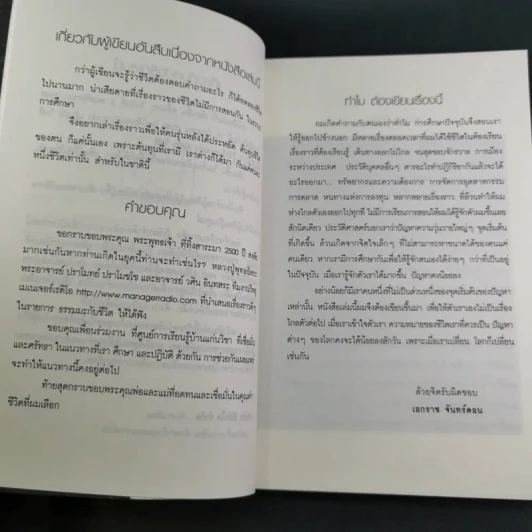 เกี่ยวกับผู้เขียนอันสืบเนื่องจากหนังสือเล่มนี้
กว่าผู้เขียนจะรู้ว่าชีวิตต้องตอบคำถามอะไร ก็ได้ทดลองชีวิต
ไปนานมาก น่าเสียดายที่เรื่องราวของชีวิตไม่มีการสอนกัน ในระบบ
การศึกษา
จึงอยากเล่าเรื่องราวเพื่อให้คนรุ่นหลังได้ประหยัด ต้นทุนชีวิต
ของตน ก็แค่นั้นเอง เพราะต้นทุนที่เรามี เราต่างก็ได้มา กันแค่คนละ
หนึ่งชีวิตเท่านั้น สำหรับในชาตินี้
คำขอบคุณ
ขอกราบขอบพระคุณ พระพุทธเจ้า ที่ทิ้งสาระมา 2500 ปี
มากเช่นกันหากท่านเกิดในยุคนี้ท่านจะทำเช่นไร? หลวงปู่พุทธอิสระ
พระอาจารย์ ปราโมทย์ ปราโมชโช และอาจารย์ วศิน อินทสระ ทีมงานวิทยุ
เมเนเจอร์เรดิโอ http://www.managerradio.com ที่นำเสนอเรื่องราวดีๆ
ในรายการ ธรรมมะกับชีวิต ให้ได้ฟัง
ขอบคุณเพื่อนร่วมงาน ที่ศูนย์การเรียนรู้บ้านแก่นวิชา ที่เชื่อมั่น
และศรัทธา ในแนวทางที่เรา ศึกษา และปฏิบัติ ด้วยกัน การช่วยกันเผยแพร่
จะทำให้แนวทางนี้คงอยู่ต่อไป
ท้ายสุดกราบขอบพระคุณพ่อและแม่ที่อดทนและเชื่อมั่นในคุณค่า
ชีวิตที่ผมเลือก
ทำไม ต้องเขียนเรื่องนี้
ผมเกิดคำถามกับตนเองว่าทำไม การศึกษาปัจจุบันจึงสอนเรา
ให้รู้ออกไปข้างนอก มีหลายเรื่องตลอดเวลาที่ผมได้ใช้ชีวิตในต้องเรียน
เรื่องราวที่ต้องเรียนรู้ เดินทางออกไปไกล จนสุดขอบจักรวาล การเมือง
ระหว่างประเทศ ประวัติบุคคลอื่นๆ สารอะไรทำปฏิกิริยากันแล้วจะได้
อะไรออกมา... ทรัพยากรและความต้องการ การจัดการอุตสาหกรรม
การตลาด หนทางแห่งการลงทุน หลากหลายเรื่องราว ที่ล้วนทำให้ผม
ห่างไกลตัวเองออกไปทุกที ไม่มีการเรียนการสอนให้ผมได้รู้จักตัวผมขึ้นเลย
สักนิดเดียว ประวัติศาสตร์บอกเราว่าปัญหาความวุ่นวายใหญ่ๆ จุดเริ่มต้น
ที่เกิดขึ้น ล้วนเกิดจากจิตใจเล็กๆ ที่ไม่สามารถหาขนาดได้ของคนแค่
คนเดียว หากเรามีการศึกษากันเพื่อให้รู้จักตนเองได้ง่ายๆ กว่าที่เป็นอยู่
ในปัจจุบัน เมื่อเรารู้จักตัวเราได้มากขึ้น ปัญหาคงน้อยลง
อย่างน้อยก็มีเราคนหนึ่งที่ไม่เป็นส่วนหนึ่งของจุดเริ่มต้นของปัญหา
เหล่านั้น หนังสือเล่มนี้ผมจึงต้องเขียนขึ้นมา เพื่อให้ตัวเราเองไม่เป็นเรื่อง
ไกลตัวต่อไป เมื่อเราเข้าใจตัวเรา ความหมายของชีวิตเราที่ควรเป็น ปัญหา
ต่างๆ ของโลกคงจะได้น้อยลงสักวัน เพราะเมื่อเราเปลี่ยน โลกก็เปลี่ยน
เช่นกัน
ด้วยจิตรับผิดชอบ
เอกราช จันทร์ดอน